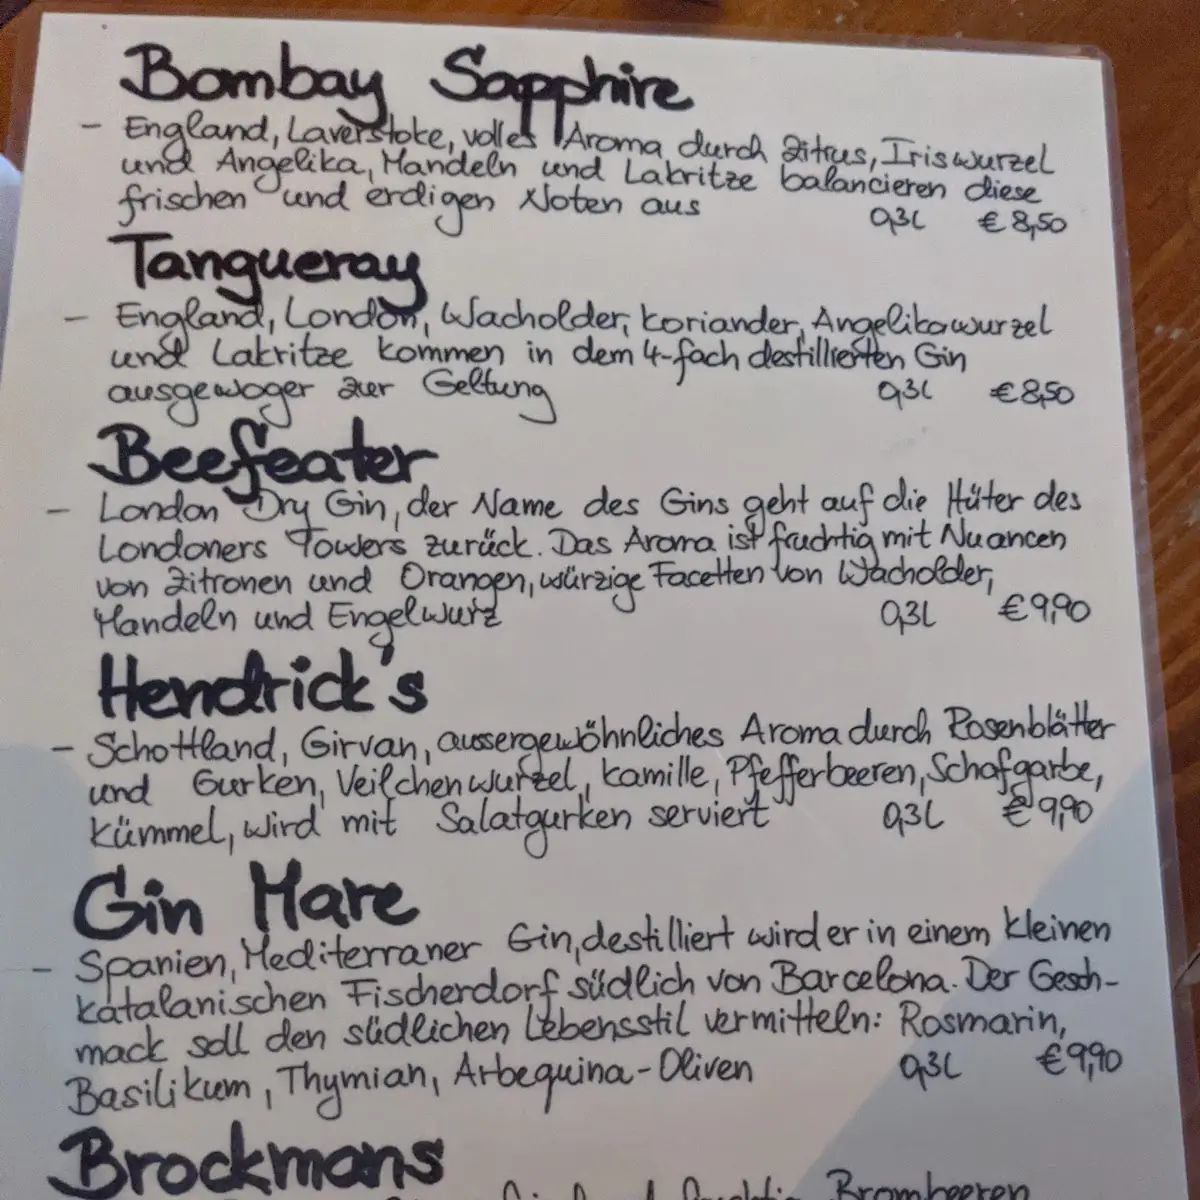 Bombay Sapphire
- England, Laverstoke, volles Aroma durch Zitrus, Iriswurzel
und Angelika, Mandeln und Lakritze balancieren diese
frischen und erdigen Noten aus 0,3L € 8,50
Tangueray
- England, London, Wacholder, Koriander, Angelikawurzel
und Lakritze kommen in dem 4-fach destillierten Gin
ausgewoger zur Geltung 0,3L € 8,50
Beefeater
- London Dry Gin, der Name des Gins geht auf die Hüter des
Londoners Towers zurück. Das Aroma ist fruchtig mit Nuancen
von Zitronen und Orangen, würzige Facetten von Wacholder,
Mandeln und Engelwurz 0,3L € 9,90
Hendrick's
- Schottland, Girvan, aussergewöhnliches Aroma durch Rosenblätter
und Gurken, Veilchenwurzel, Kamille, Pfefferbeeren, Schafgarbe,
Kümmel, wird mit Salatgurken serviert 0,3L € 9,90
Gin Mare
- Spanien, Mediterraner Gin, destilliert wird er in einem kleinen
katalanischen Fischerdorf südlich von Barcelona. Der Gesch-
mack soll den südlichen Lebensstil vermitteln: Rosmarin,
Basilikum, Thymian, Arbequina-Oliven 0,3L € 9,90
Brockmans
Brombeeren